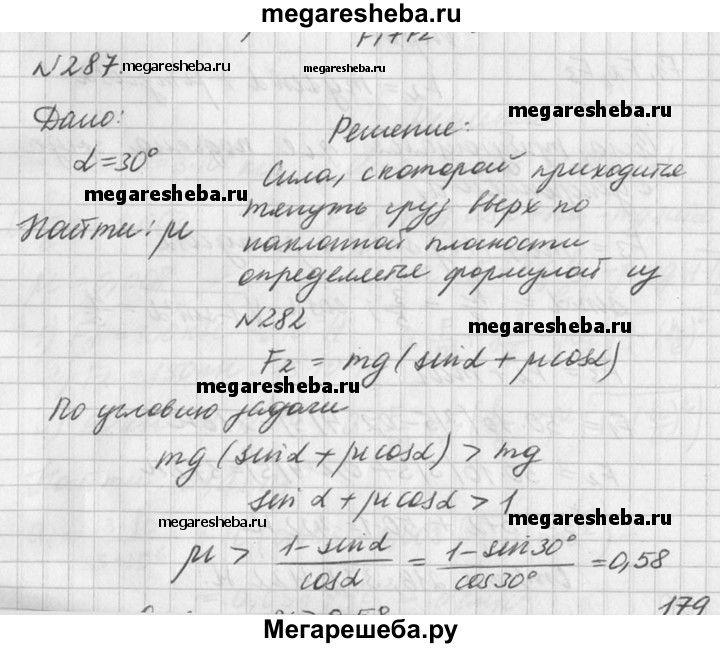 megaresheba.ru
F₁+F₂
N287. megaresheba.ru
megaresheba.ru
Дано:
Решение:
α=30°
Сила, с которой приходится
megaresheba.ru
тянуть груз вверх по
Найти: μ
наклонной плоскости
определяется формулой из
N282
megaresheba.ru
F₂ = mg(sinα+μcosα)
megaresheba.ru
По условию задачи
mg(sinα+μcosα) > mg
sinα+μcosα > 1
megaresheba.ru megaresheba.ru
μ > (1-sinα)/cosα = (1-sin30°)/cos30° = 0,58
179
Мегарешеба.ру